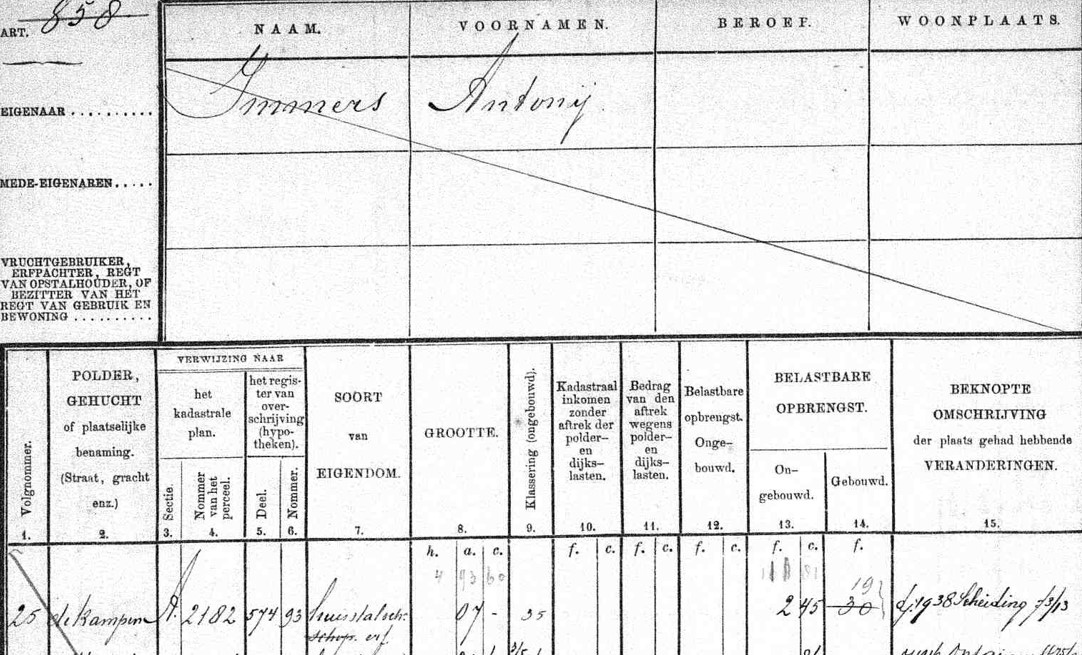 ART. 858
NAAM. VOORNAMEN. BEROEF. WOONPLAATS.
EIGENAAR .......... Immers Antonij
MEDE-EIGENAREN.....
VRUCHTGEBRUIKER,
ERFPACHTER, REGT
VAN OPSTALHOUDER, OF
BEZITTER VAN HET
REGT VAN GEBRUIK EN
BEWONING ..........
Volgnommer.
1.
POLDER,
GEHUCHT
of plaatselijke
benaming.
(Straat, gracht
enz.)
2.
VERWIJZING NAAR
het
kadastrale
plan.
Sectie.
3.
Nommer
van het
perceel.
4.
het regis-
ter van
over-
schrijving
(hypo-
theken).
Deel.
5.
Nommer.
6.
SOORT
van
EIGENDOM.
7.
GROOTTE.
8.
Klassering (ongebouwd).
9.
Kadastraal
inkomen
zonder
aftrek der
polder-
en
dijks-
lasten.
10.
Bedrag
van den
aftrek
wegens
polder-
en
dijks-
lasten.
11.
Belastbare
opbrengst.
Onge-
bouwd.
12.
BELASTBARE
OPBRENGST.
On-
gebouwd.
13.
Gebouwd.
14.
BEKNOPTE
OMSCHRIJVING
der plaats gehad hebbende
VERANDERINGEN.
15.
h. a. c. f. c. f. c. f. c. f. c. f.
4 93 60
19
25 de Kampen A. 2182 574 93 07 - 35 2 45 30 1938 Scheiding
schop. erf